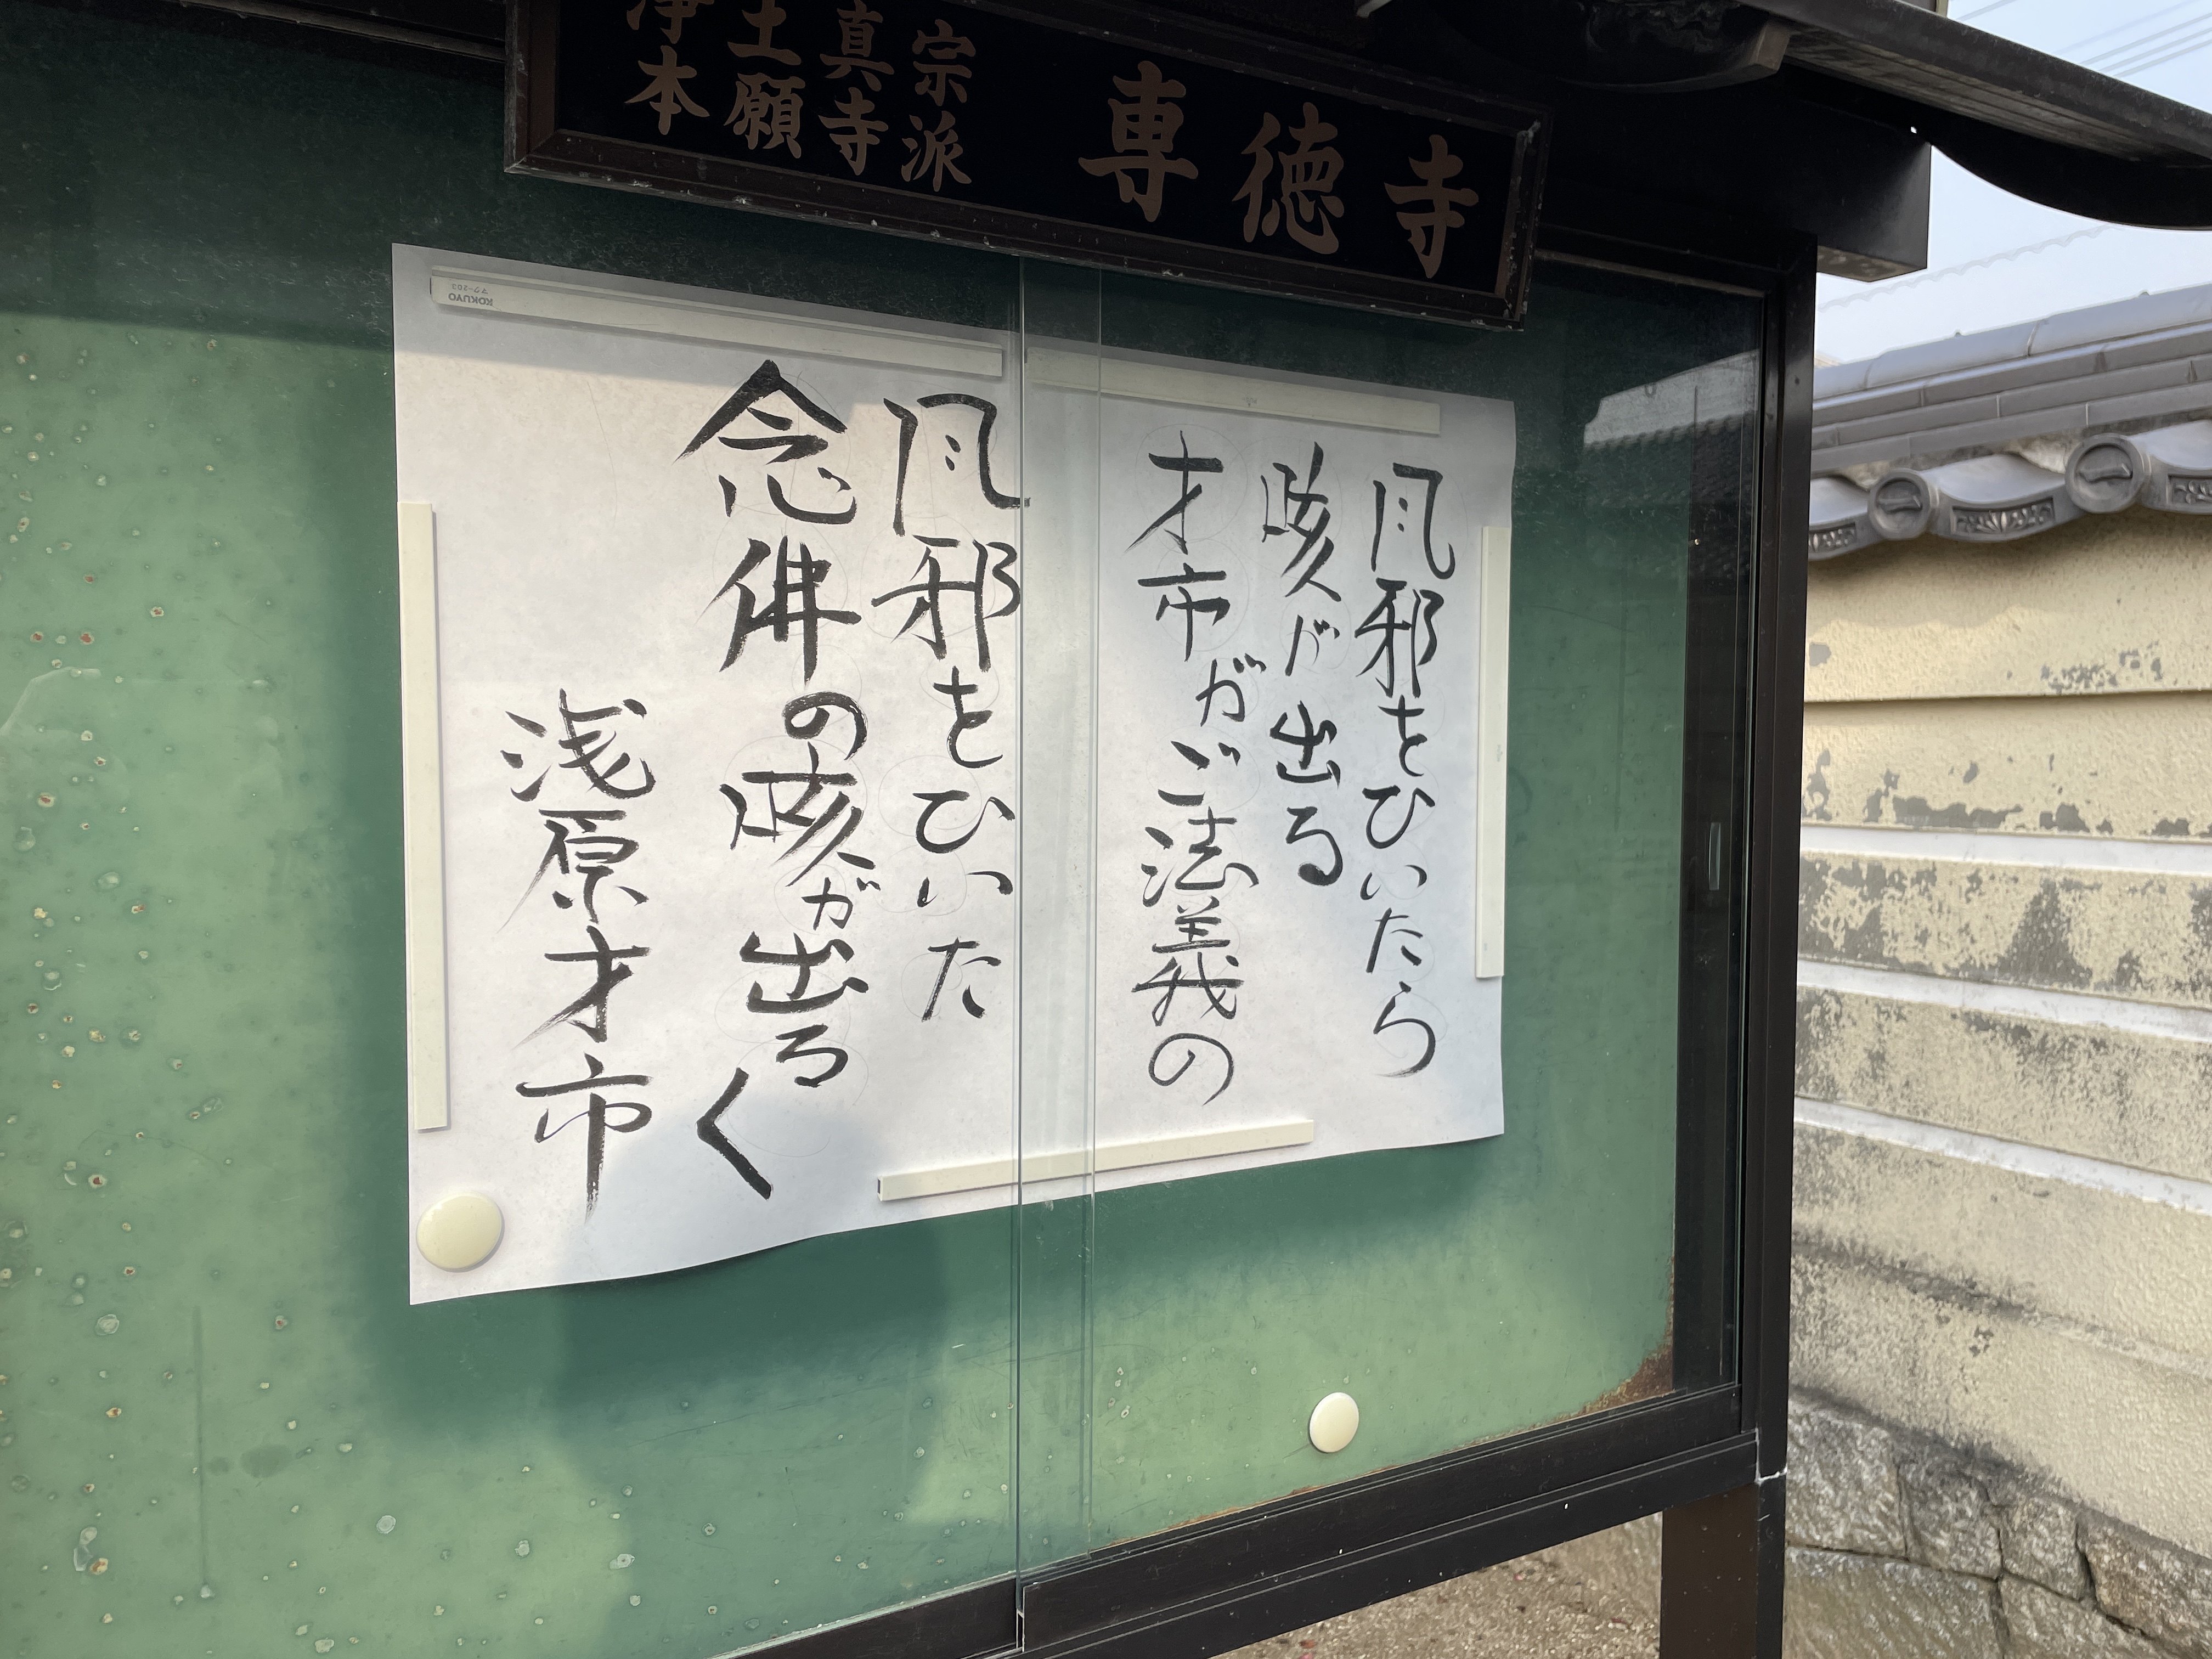 浄土真宗
本願寺派
専徳寺
風邪をひいたら
咳が出る
才市がご法義の
風邪をひいた
念佛の咳が出る〱
浅原才市
KOKUYO